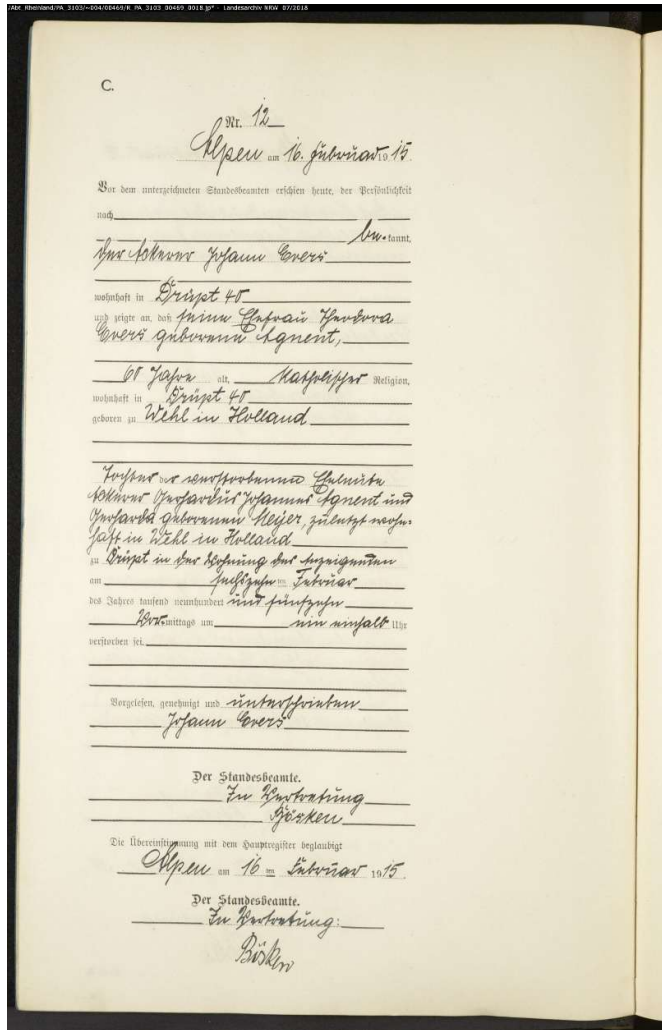 /Abt. Rheinland/PA_3103/~004/00469/R_PA_3103_00469_0018.jp* - Landesarchiv NRW 07/2018
C.
Nr. 12
Alpen am 16. Februar 1915.
Vor dem unterzeichneten Standesbeamten erschien heute, der Persönlichkeit
nach
be-kannt,
der Ackerer Johann Evers
wohnhaft in Drüpt 40
und zeigte an, daß seine Ehefrau Theodora
Evers geborene Agnent,
60 Jahre alt, katholischer Religion,
wohnhaft in Drüpt 40
geboren zu Wehl in Holland
Tochter der verstorbenen Eheleute
Ackerer Gerhardus Johannes Agnent und
Gerharda geborenen Meijer, zuletzt wohn-
haft in Wehl in Holland
zu Drüpt in der Wohnung des Anzeigenden
am sechszehn ten Februar
des Jahres tausend neunhundert und fünfzehn
Vor-mittags um ein einhalb Uhr
verstorben sei.
Vorgelesen, genehmigt und unterschrieben
Johann Evers
Der Standesbeamte.
In Vertretung
Bösken
Die Übereinstimmung mit dem Hauptregister beglaubigt
Alpen am 16 ten Februar 1915.
Der Standesbeamte.
In Vertretung:
Bösken